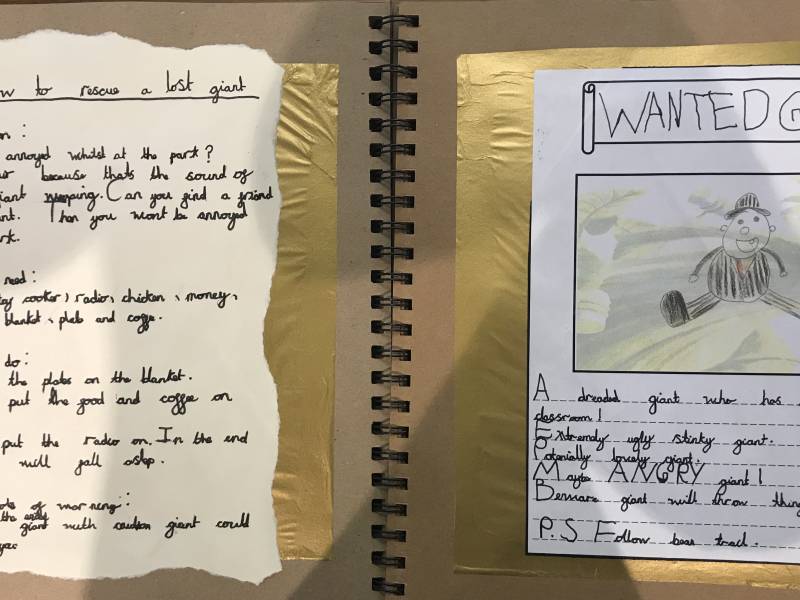 to rescue a lost giant
:
annoyed whilst at the park?
because thats the sound of
giant weeping. Can you find a friend
Then you wont be annoyed
need:
cooker, radio, chicken, money,
blanket, and
do:
the plates on the blanket.
put the food and coffee on
put the radio on. In the end
will fall aslep.
of warning:
the giant with caution giant could
WANTED G
A dreaded giant who has
classroom!
Extremely ugly stinky giant.
Potenially lonely giant.
Maybe ANGRY giant!
Beware giant will throw thing
P.S Follow bear track.